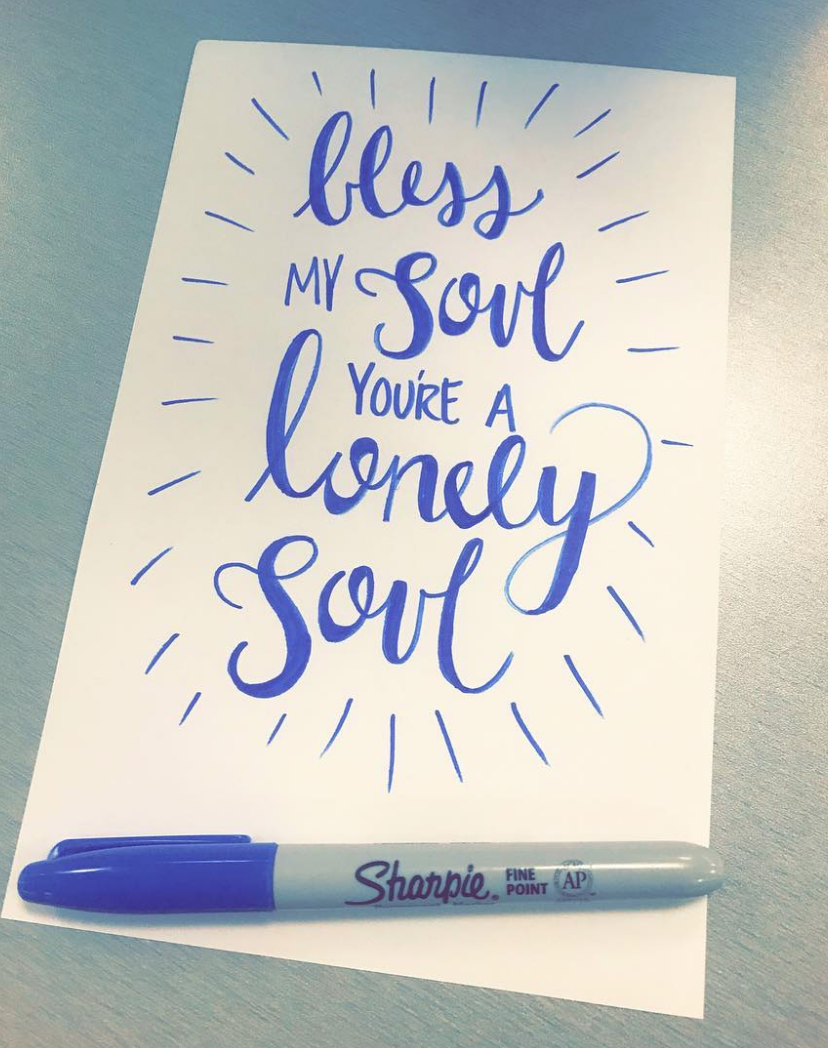 bless
MY Soul
YOU'RE A
lonely
Soul
Sharpie. FINE
POINT
AP